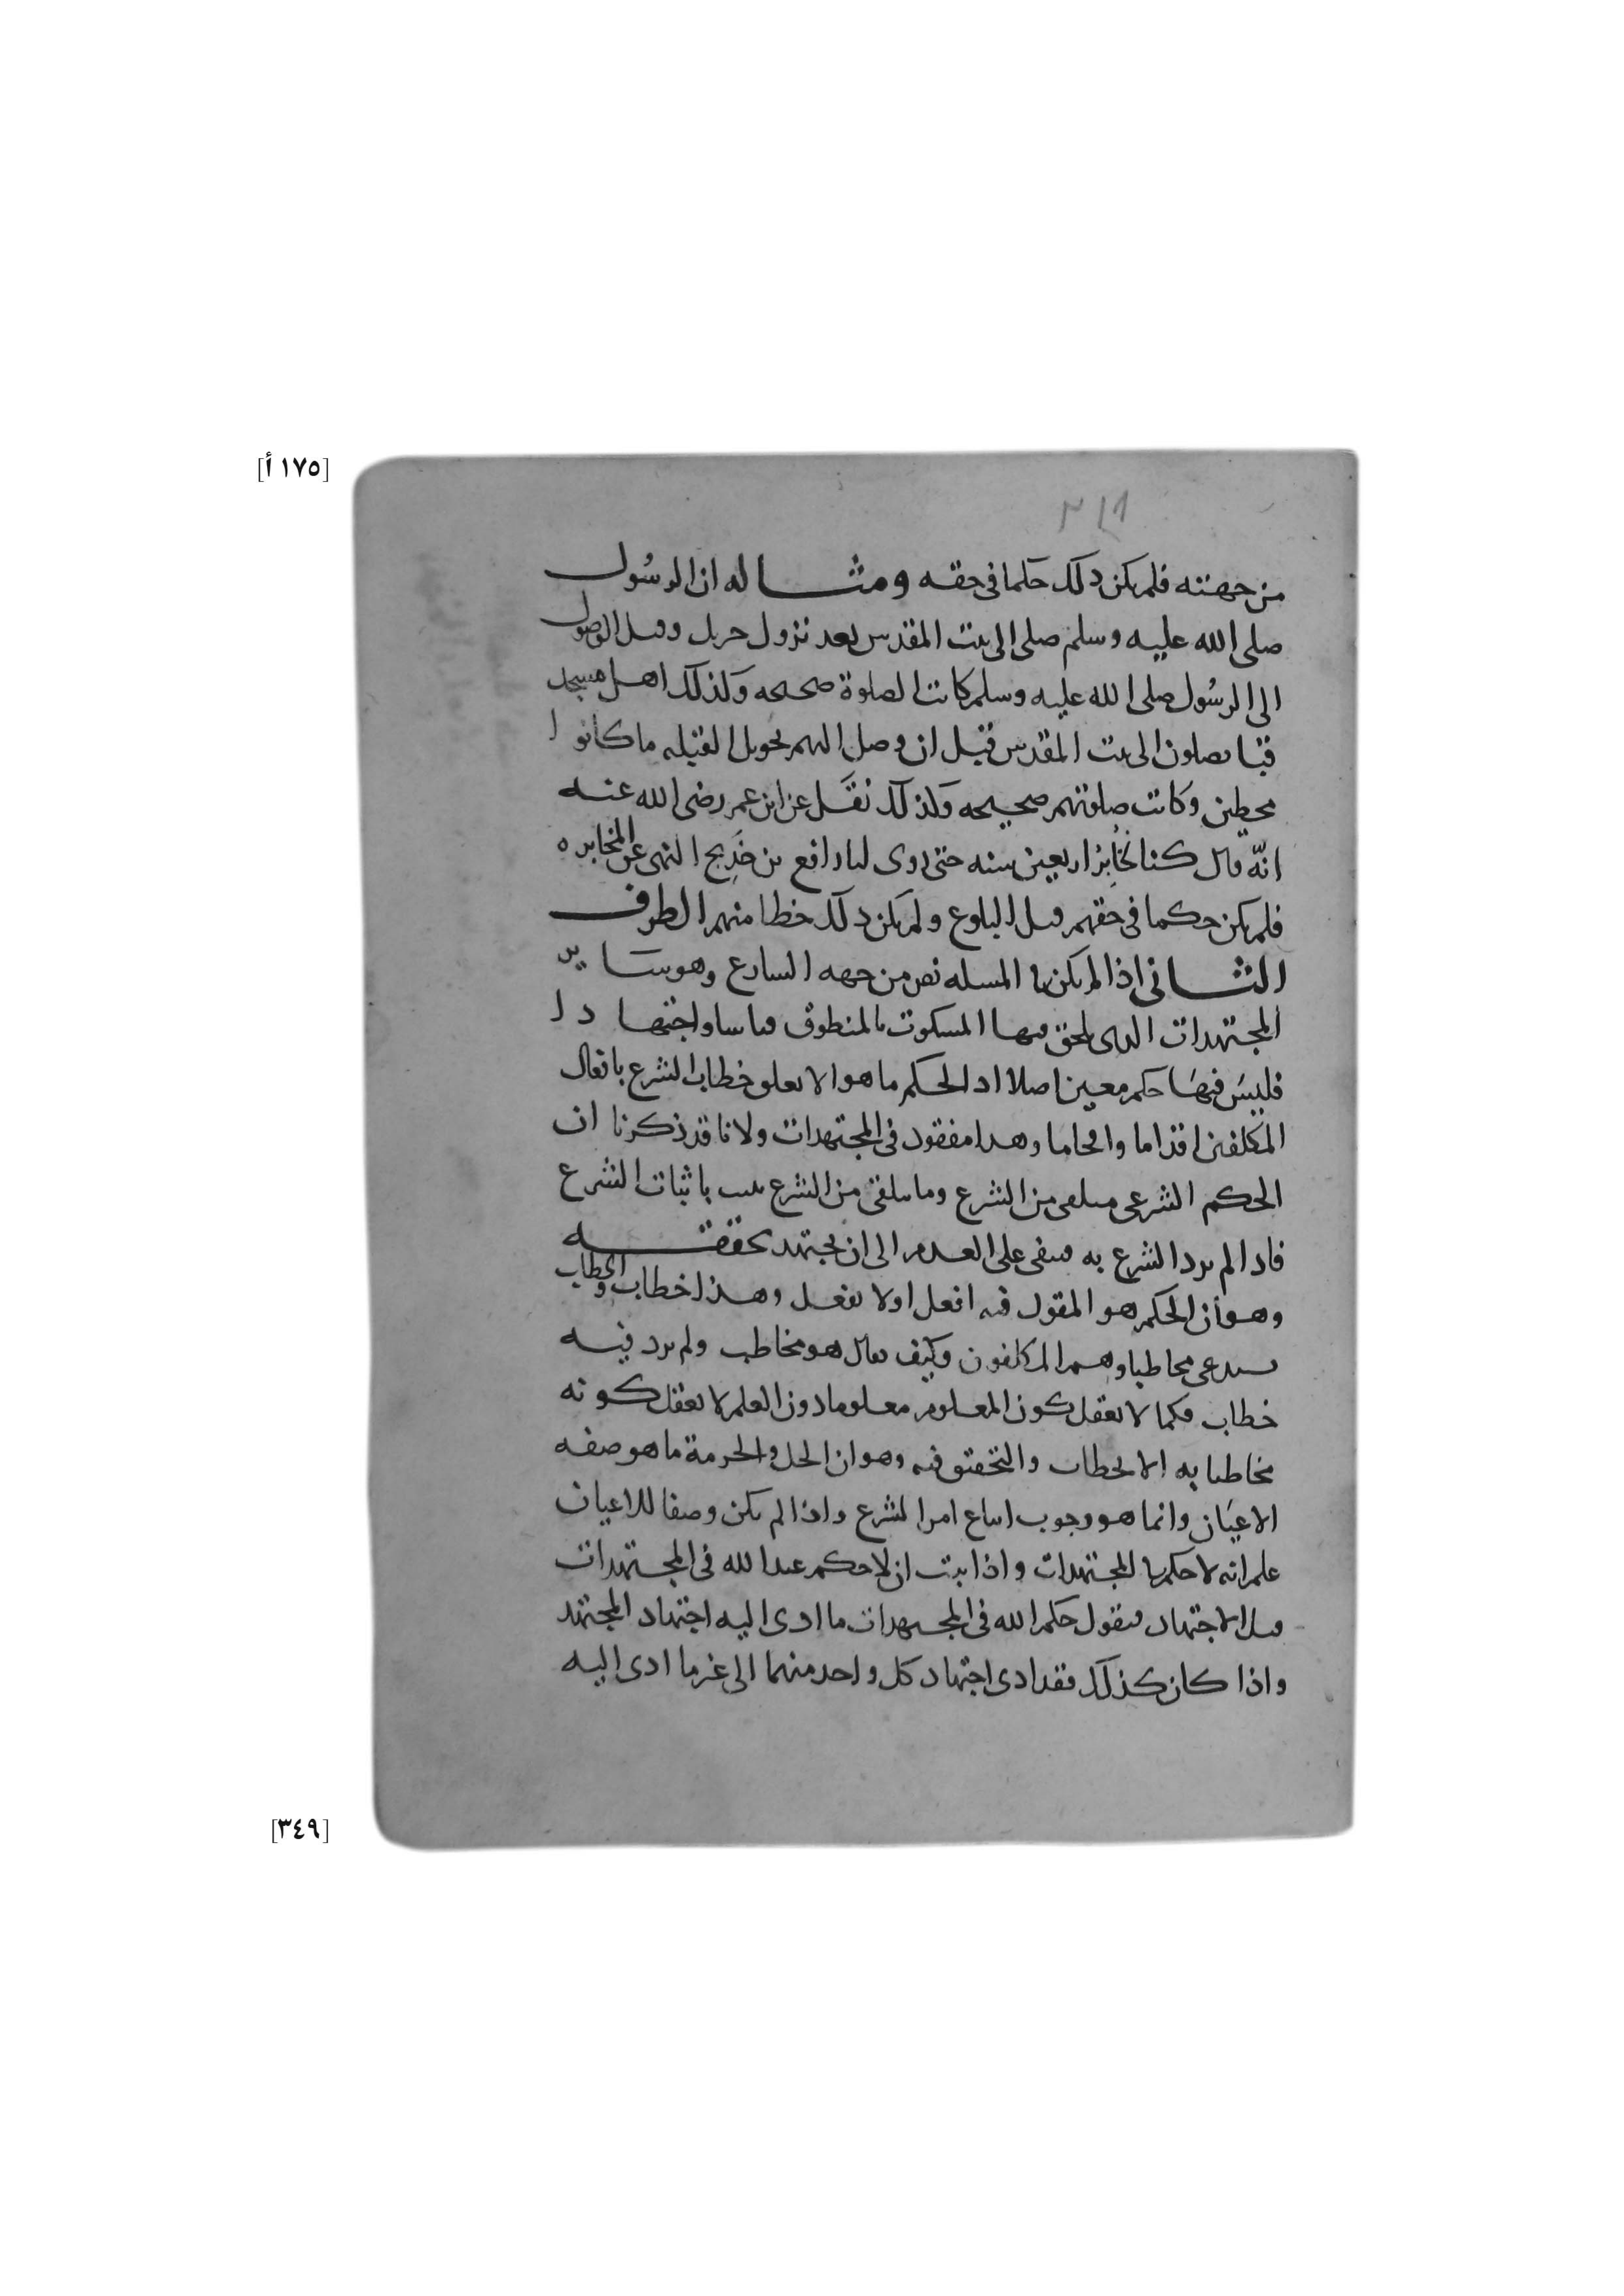 [١٧٥ أ]
من جهته فلم يكن ذلك حكما فى حقه ومثاله ان الرسول
صلى الله عليه وسلم صلى الى بيت المقدس بعد نزول جبريل وقبل الوصول
الى الرسول صلى الله عليه وسلم كانت الصلوة صحيحه وكذلك اهل مسجد
قبا يصلون الى بيت المقدس قبل ان وصل اليهم تحويل القبله ما كانوا
مخطين وكانت صلوتهم صحيحه وكذلك نقل عن ابن عمر رضى الله عنه
انه قال كنا نخابر اربعين سنه حتى روى لنا رافع بن خديج النهى عن المخابره
فلم يكن حكما فى حقهم قبل البلوغ ولم يكن ذلك خطا منهم الطرف
الثانى اذا لم يكن فى المسله نص من جهه الشارع وهو ساير
المجتهدات الذى يلحق فيها المسكوت بالمنطوق قياسا واجتهادا
فليس فيها حكم معين اصلا اذ الحكم ما هو الا تعلق خطاب الشرع بافعال
المكلفين اقداما واحجاما وهذا مفقود فى المجتهدات ولانا قد ذكرنا ان
الحكم الشرعى متلقى من الشرع وما يتلقى من الشرع يثبت باثبات الشرع
فاذا لم يرد الشرع به فيبقى على العدم الى ان يجتهد تحققه
وهو أن الحكم هو المقول فيه افعل او لا تفعل وهذا خطاب والخطاب
يستدعى مخاطبا وهم المكلفون وكيف يقال هو مخاطب ولم يرد فيه
خطاب فكما لا يعقل كون المعلوم معلوما دون العلم لا يعقل كونه
مخاطبا به الا بخطاب والتحقيق فيه وهو ان الحل والحرمة ما هو صفه
الاعيان وانما هو وجوب اتباع امر الشرع واذا لم يكن وصفا للاعيان
علم انه لا حكم فى المجتهدات واذا ثبت ان لا حكم عند الله فى المجتهدات
قبل الاجتهاد فنقول حكم الله فى المجتهدات ما ادى اليه اجتهاد المجتهد
واذا كان كذلك فقد ادى اجتهاد كل واحد منهما الى غير ما ادى اليه
[٣٤٩]